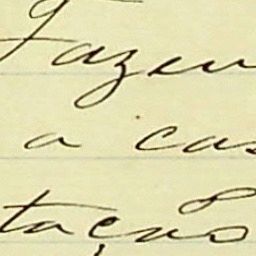 Fazen
a cas
tação